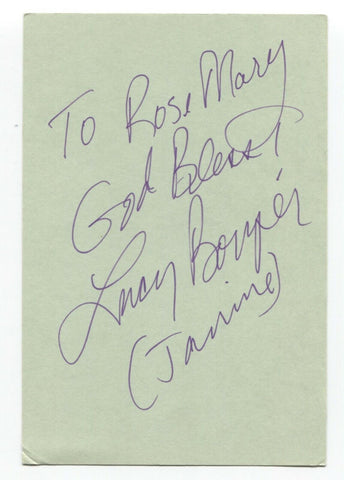 To Rose Mary
God Bless!
Lucy Boryér
(Janine)